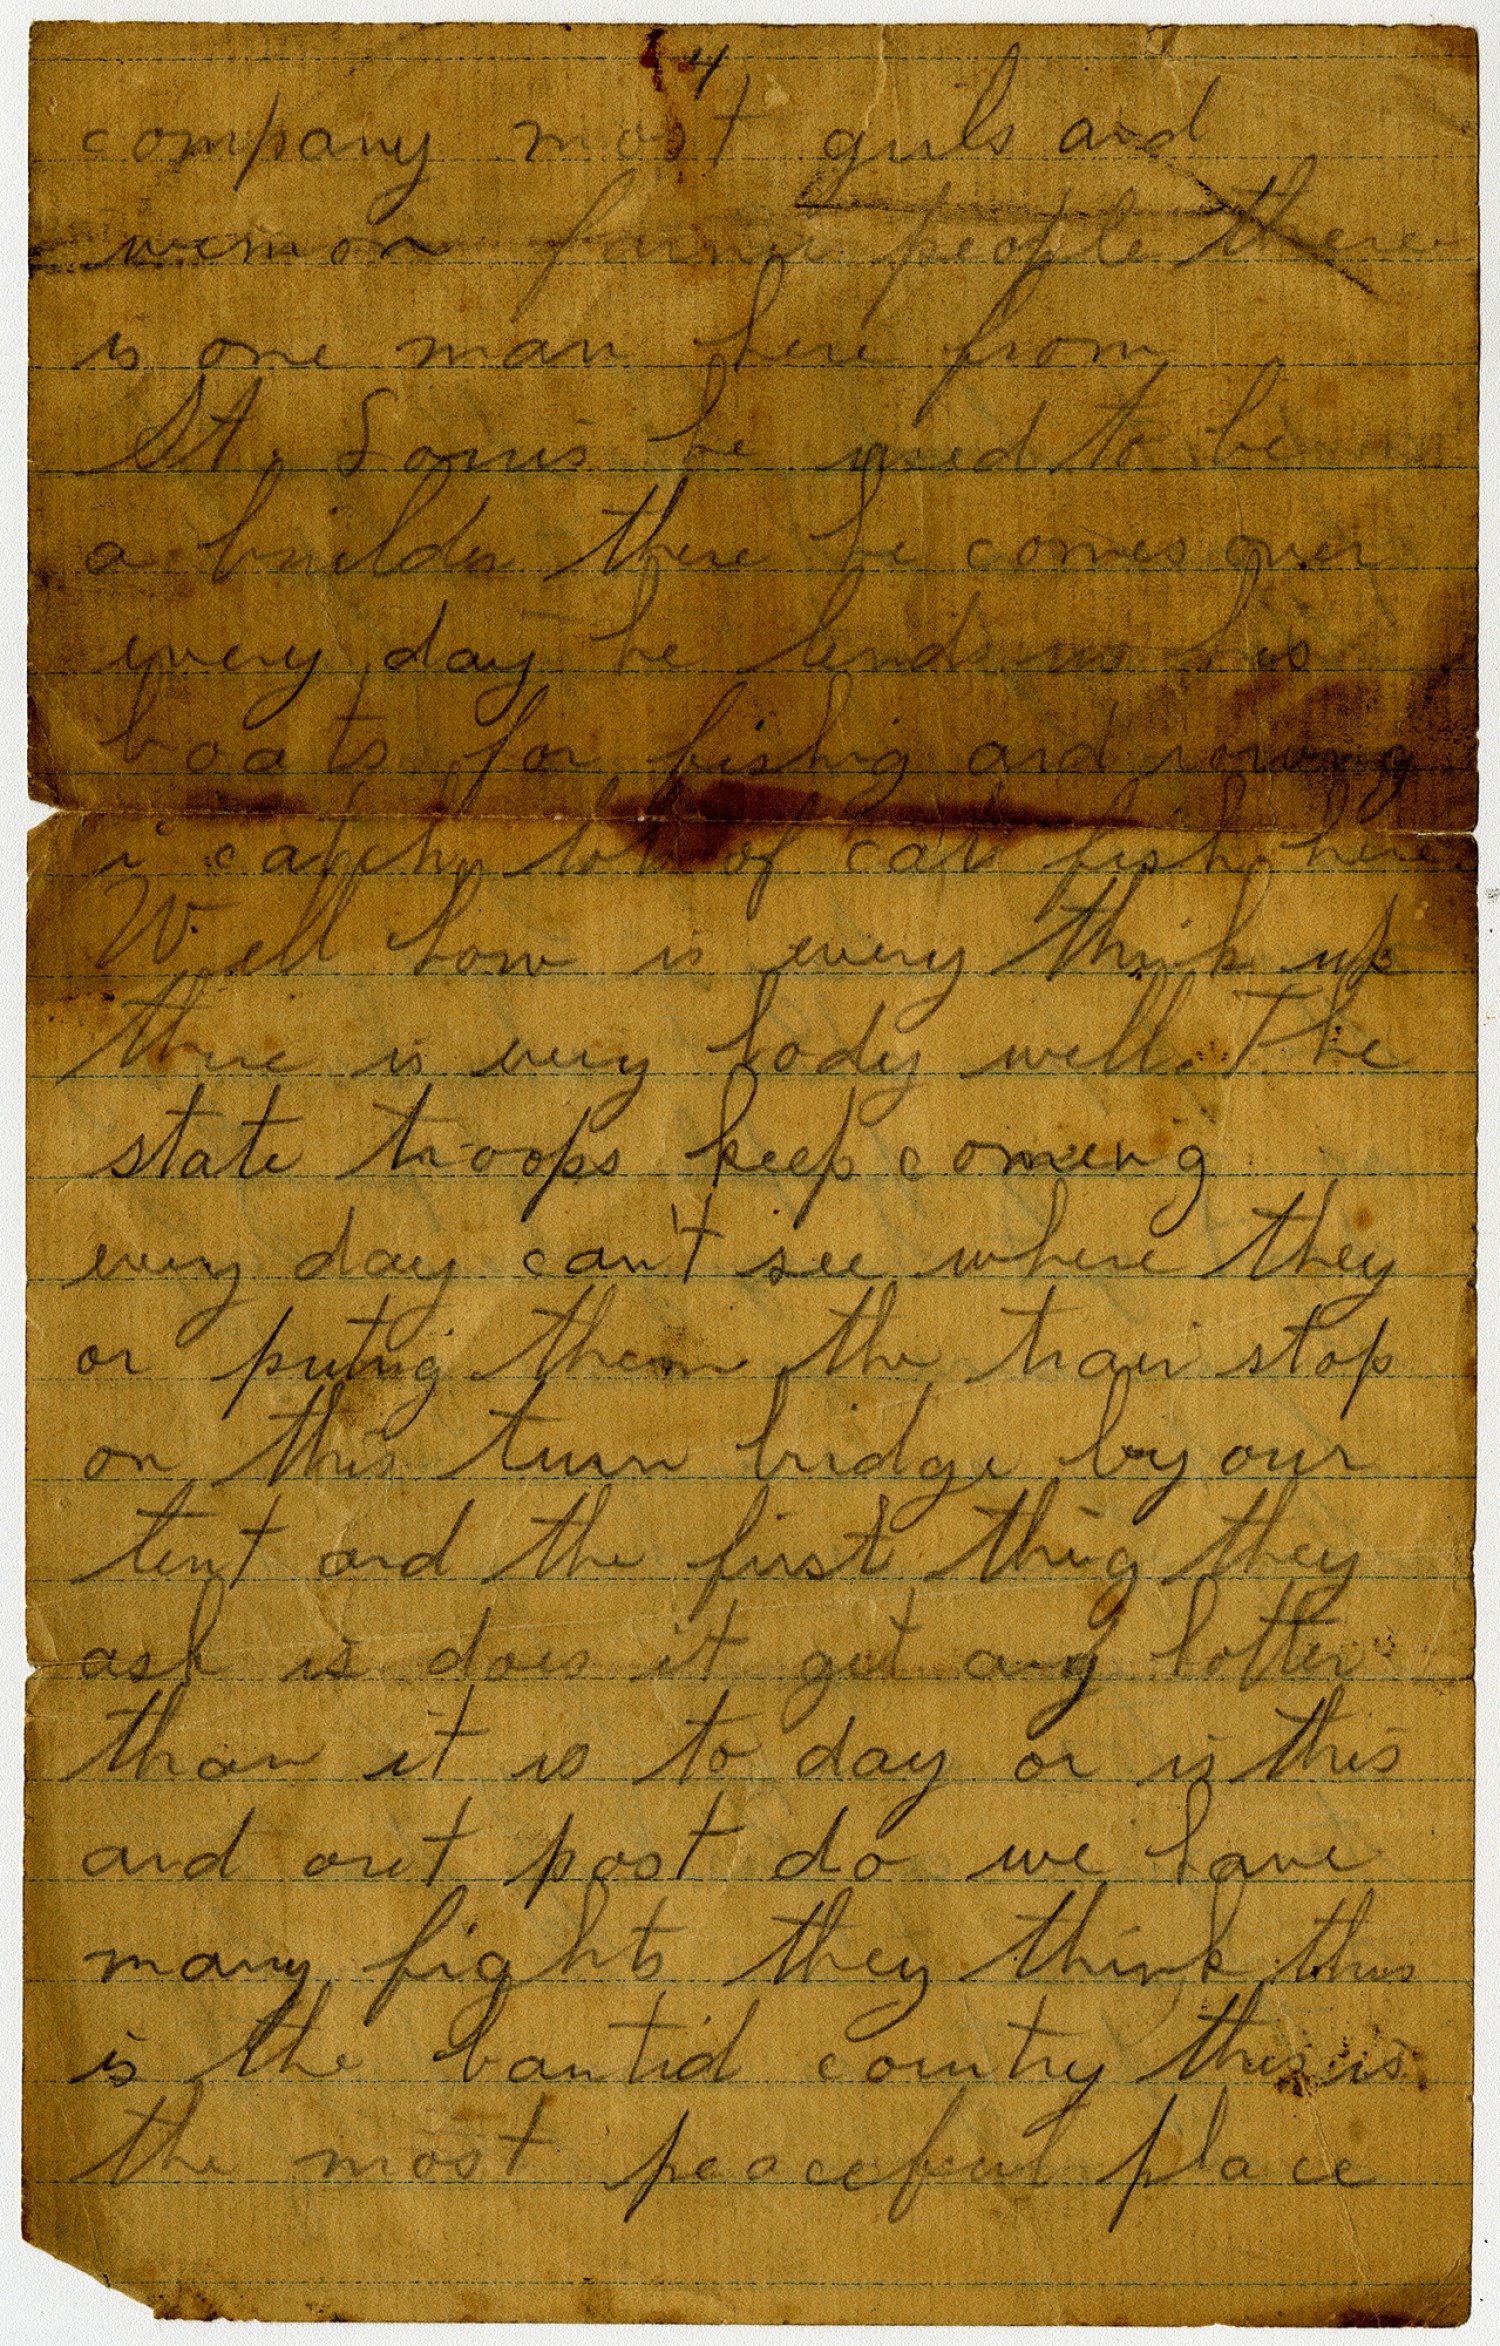 4
company most girls and
wemon farmer people there
is one man here from
St. Louis he used to be
a builder there he comes over
every day he lends us his
boats for fishig and rowing
i catch lots of cat fish here.
Well how is every think up
there is every body well. The
state troops keep comeing
every day can't see where they
or puting them the train stop
on this turn bridge by our
tent and the first thing they
ask is does it get any hotter
than it is to day or is this
and out post do we have
many fights they think this
is the bantid country this is
the most peaceful place